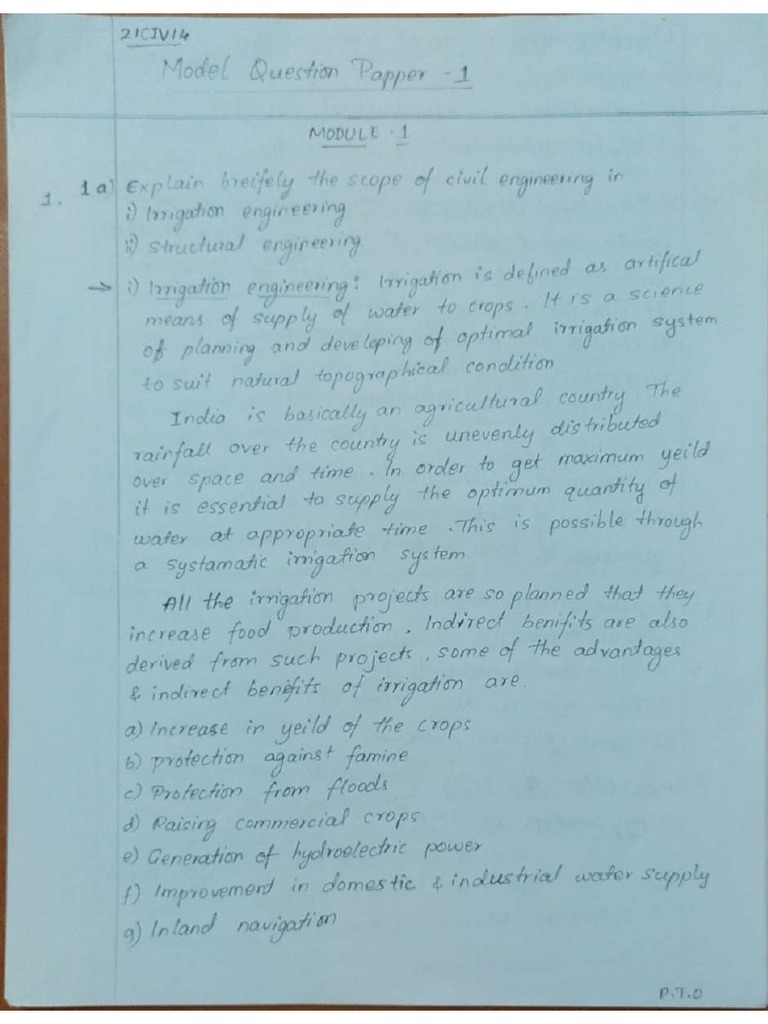 21CIV14
Model Question Papper - 1
MODULE - 1
1. 1 a) Explain breifely the scope of civil engineering in
i) Irrigation engineering
ii) Structural engineering
→ i) Irrigation engineering : Irrigation is defined as artifical
means of supply of water to crops . It is a science
of planning and developing of optimal irrigation system
to suit natural topographical condition
India is basically an agricultural country . The
rainfall over the country is unevenly distributed
over space and time . In order to get maximum yeild
it is essential to supply the optimum quantity of
water at appropriate time . This is possible through
a systamatic irrigation system
All the irrigation projects are so planned that they
increase food production , Indirect benifits are also
derived from such projects . some of the advantages
& indirect benefits of irrigation are.
a) Increase in yeild of the crops
b) protection against famine
c) Protection from floods
d) Raising commercial crops
e) Generation of hydroelectric power
f) Improvement in domestic & industrial water supply
g) Inland navigation
P.T.O